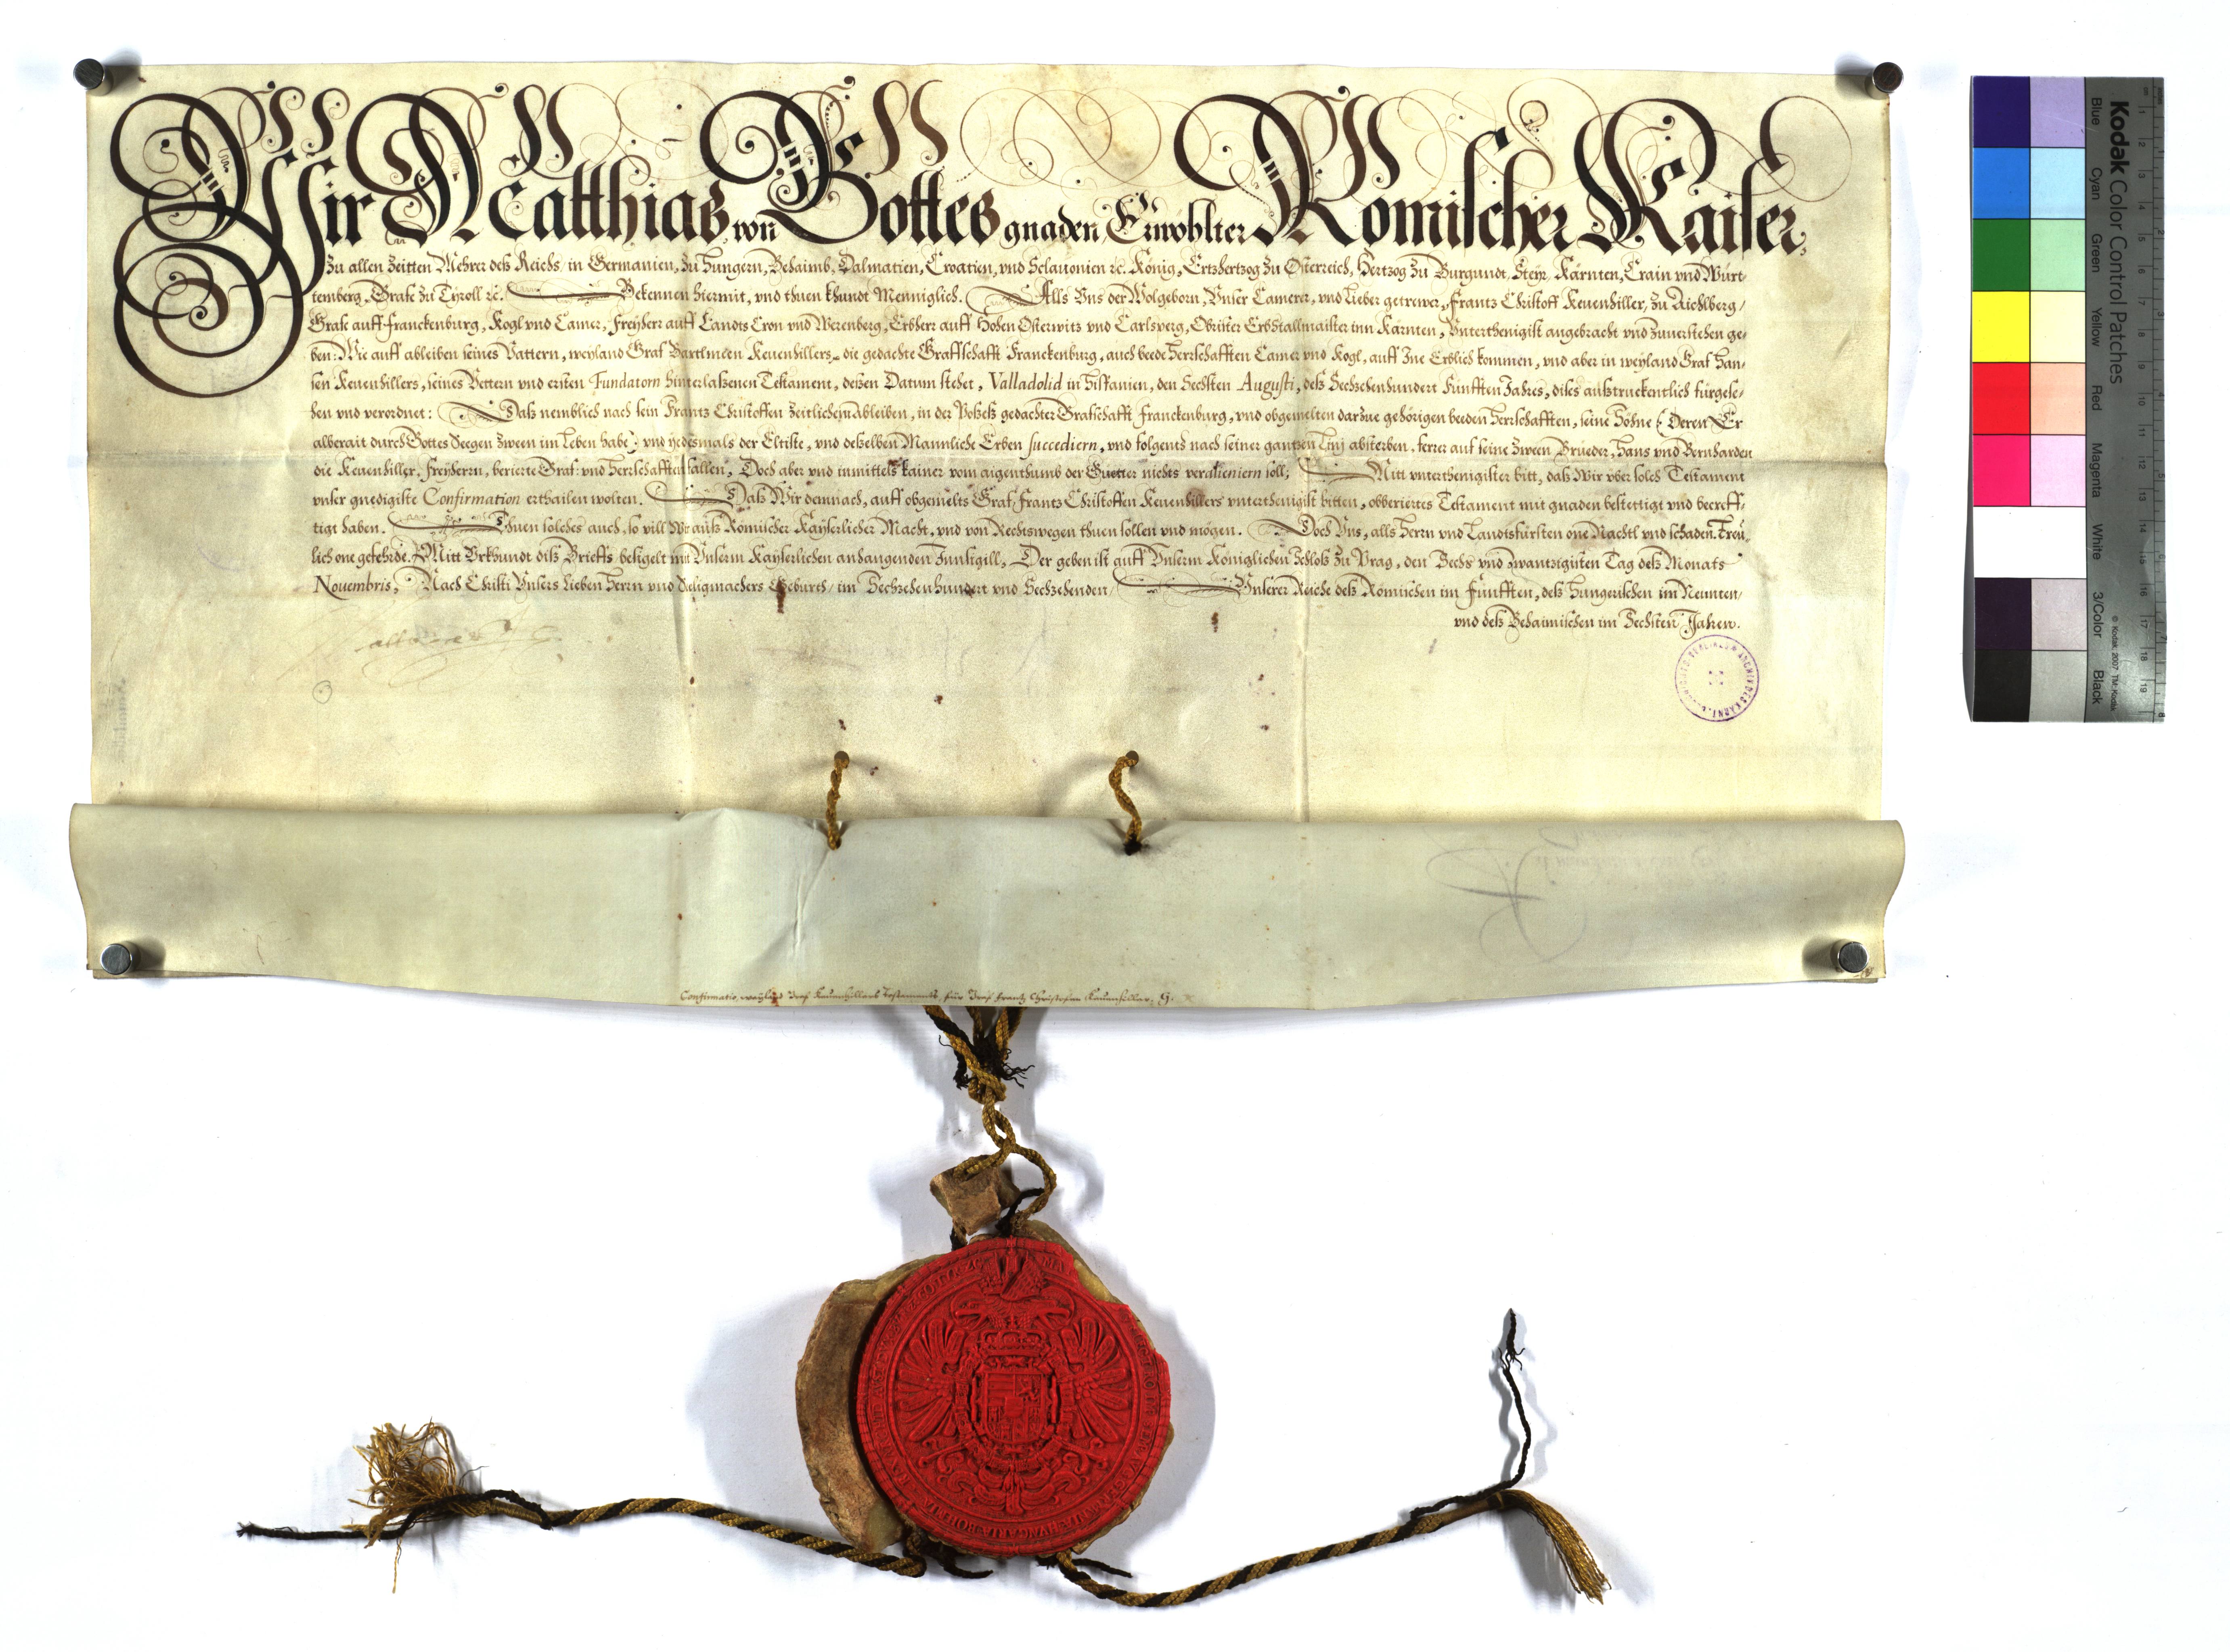 Wir Matthias von Gottes gnaden Erwohlter Romischer Kaiser,
Zu allen Zeitten Mehrer deß Reichs, in Germanien, zu Hungern, Behaimb, Dalmatien, Croatien, vnd Sclauonien ꝛc. König, Ertzhertzog zu Österreich, Hertzog zu Burgundt, Steyr, Kärnten, Crain vnd Wurt
temberg, Grafe zu Tyroll ꝛc. Bekennen hiermit, vnd thuen khundt Menniglich. Alls Vns der Wolgeborn, Vnser Camerer, vnd lieber getrewer, Frantz Christoff Keuenhiller, zu Aichlberg,
Grafe auff Franckenburg, Kogl vnd Camer, Freyherr auff Landts Cron vnd Wernberg, Erbherr auff Hohen Osterwitz vnd Carlsperg, Obrister Erbstallmaister inn Kärnten, Vnterthenigist angebracht vnd zuuerstehen ge-
ben: Wie auff ableiben seines Vattern, weyland Graf Bartlmeen Keuenhillers, die gedachte Graffschafft Franckenburg, auch beede Herrschafften Camer vnd Kogl, auff Ine Erblich kommen, vnd aber in weyland Graf Han-
sen Keuenhillers, seines Vettern vnd ersten Fundatorn hinterlaßenen Testament, deßen Datum stehet, Valladolid in Hispanien, den Sechsten Augusti, deß Sechzehenhundert Fünfften Jahres, dises außtruckentlich fürgese-
hen vnd verordnet: Daß nemblich nach sein Frantz Christoffen zeitlichem Ableiben, in der Poßeß gedachter Grafschafft Franckenburg, vnd obgemelten darzue gehörigen beeden Herrschafften, seine Söhne (Deren Er
alberait durch Gottes Seegen zween im leben habe) vnd yedesmals der Eltiste, vnd deßelben Mannliche Erben succediern, vnd folgents nach seiner gantzen Linj absterben, ferrer auf seine zween Brüeder, Hans vnd Bernharden
die Keuenhiller, Freyherrn, berierte Graf vnd Herrschafften fallen, Doch aber vnd inmittels kainer vom aigenthumb der Guetter nichts veralieniern soll; Mitt vnterthenigister bitt, daß Wir vber solch Testament
vnser gnedigiste Confirmation erthailen wolten. Daß Wir demnach, auff obgemelts Graf Frantz Christoffen Keuenhillers vnterthenigist bitten, obberiertes Testament mit gnaden bestettigt vnd becreff-
tigt haben. Thuen solches auch, so vill Wir auß Römischer Kayserlicher Macht, vnd von Rechtswegen thuen sollen vnd mögen. Doch Vns, alls Herrn vnd Landtsfürsten one Nachtl vnd schaden. Treu-
lich one gefehrde. Mitt Vrkhundt diß Brieffs besigelt mit Vnserm Kayserlichen anhangenden Innsigill, Der geben ist auff Vnserm Königlichen Schloß zu Prag, den Sechs vnd zwantzigisten Tag deß Monats
Nouembris, Nach Christi Vnsers lieben Herrn vnd Seligmachers Geburth, im Sechzehenhundert vnd Sechzehenden, Vnserer Reiche deß Römischen im Fünfften, deß Hungerischen im Neunten,
vnd deß Behaimischen im Sechsten Jahrn.
Confirmatio, weyland Graf Keuenhillers Testaments, für Graf Frantz Christofen Keuenhiller. G.
Kodak Color Control Patches
Blue Cyan Green Yellow Red Magenta White 3/Color Black
© Kodak, 2007 TM: Kodak